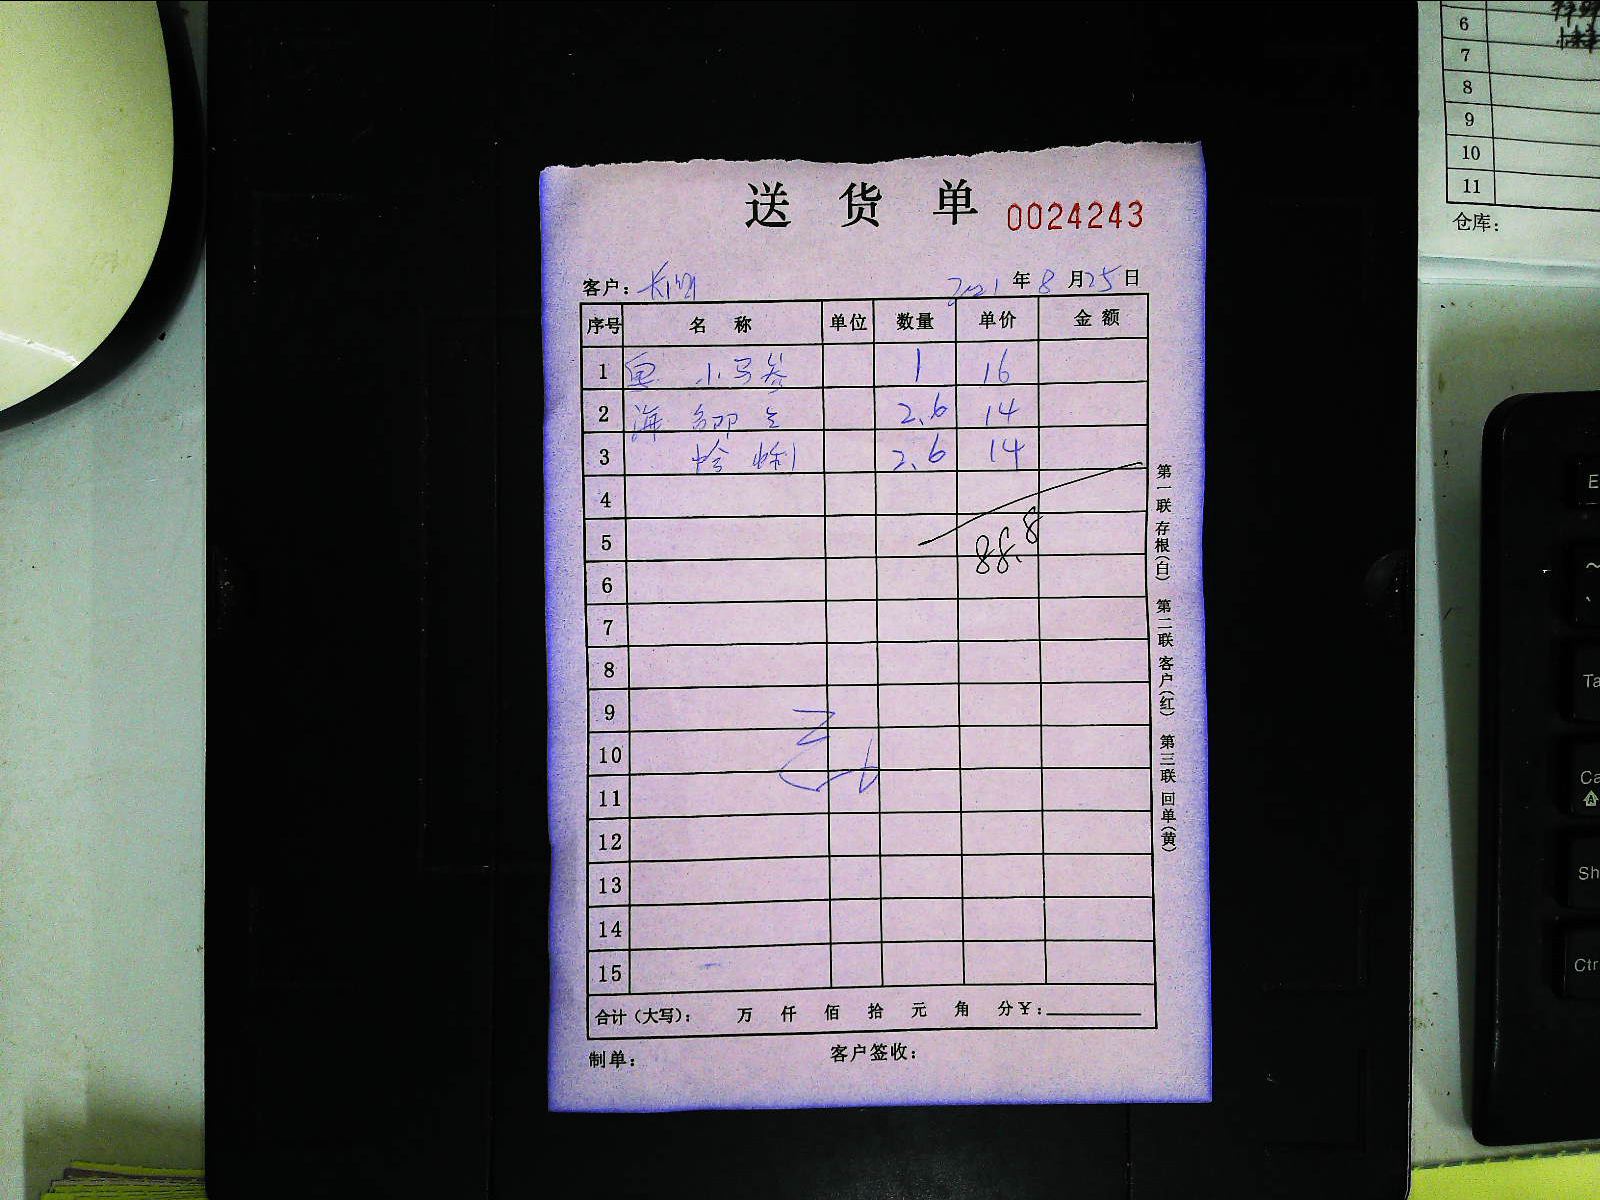 送 货 单 0024243
客户： 2021 年 8 月 25 日
序号 名 称 单位 数量 单价 金 额
1 小 1 16
2 海 2.6 14
3 2.6 14
4
5 88.8
6
7
8
9
10
11
12
13
14
15
合计（大写）： 万 仟 佰 拾 元 角 分￥：
制单： 客户签收：
第一联 存根（白） 第二联 客户（红） 第三联 回单（黄）
6
7
8
9
10
11
仓库：
E
~
Ta
Ca
Sh
Ctr